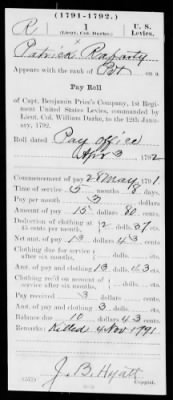 (1791-1792.)
R | 1 | U. S.
(Lieut. Col. Darke.) Levies.
Patrick Raparty
Appears with the rank of Pvt on a
Pay Roll
of Capt. Benjamin Price's Company, 1st Regiment
United States Levies, commanded by
Lieut. Col. William Darke, to the 12th
January, 1792.
Roll dated Pay office
Apr 3 1792
Commencement of pay 28 May, 1791.
Time of service 5 months 18 days.
Pay per month 3 dollars
Amount of pay 15 dolls. 80 cents.
Deduction of clothing at
45 cents per month, 2 dolls. 37 cts.
Net amt. of pay 13 dolls. 43 cts.
Clothing due on account of
service after six months, dolls. cts.
Amt. of pay and clothing 13 dolls. 43 cts.
Clothing rec'd on account of
service after six months, dolls. cts.
Pay received 3 dolls. cts.
Amt. of pay and clothing 3 dolls. cts.
Balance due 10 dolls. 43 cts.
Remarks: Killed 4 Nov 1791
J. B. Hyatt
Copyist.